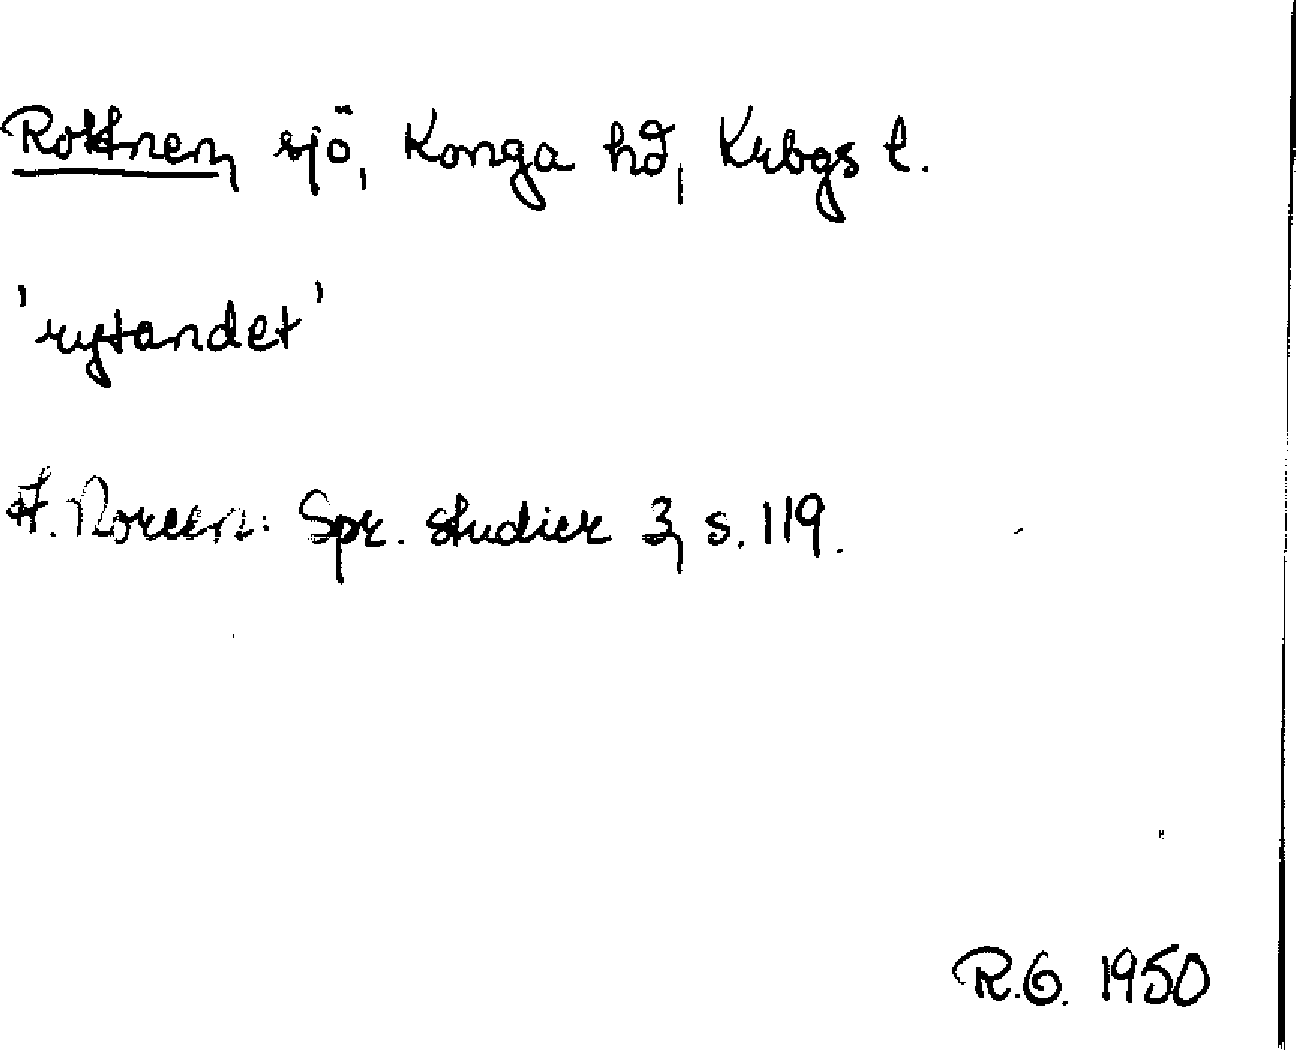 Rottnen, sjö, Konga hd, Krbgs l.
'rytandet'
A. Noreen: Spr. studier 3, s. 119.
R.G. 1950